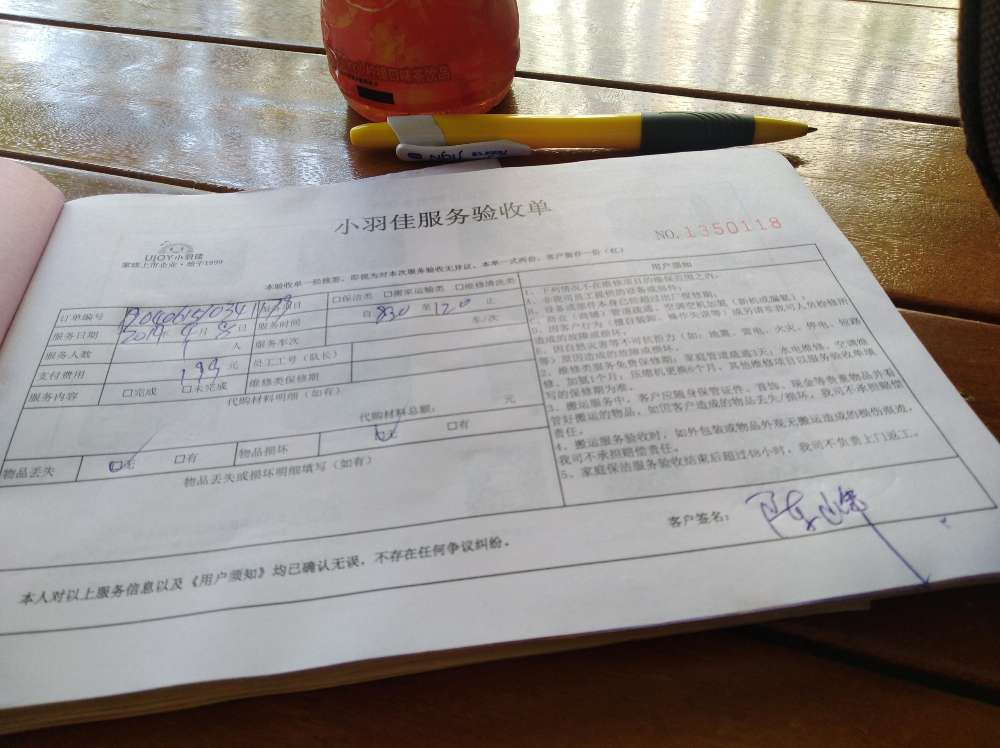 味茶饮品
小羽佳服务验收单
NO.1350118
UJOY小羽佳
家政上市企业·始于1999
本验收单一经签署，即视为对本次服务验收无异议。本单一式两份，客户留存一份（红）
订单编号
服务项目
□保洁类 □搬家运输类 □维修清洗类
服务日期 2019 年 月 日
服务时间 自 830 至 120 止
服务人数 人
服务车次 车/次
支付费用 199 元
员工工号（队长）
服务内容 □完成 □未完成
维修类保修期
代购材料明细（如有）
代购材料总额： 元
物品丢失 □无 □有
物品损坏 □无 □有
物品丢失或损坏明细填写（如有）
用户须知
1、下列情况不在维修项目的维保范围之内：
A、非我司员工提供的设备或部件；
B、设备或部件本身已经超过出厂保修期。
等）原因造成的故障或损坏。
2、维修类服务免费保修期，家庭管道疏通3天；水电维修、空调维
修、加氟1个月；压缩机更换6个月，其他维修项目以服务验收单填
写的保修期为准。
3、搬运服务中，客户应随身保管证件、首饰、现金等贵重物品并看
管好搬运的物品，如因客户造成的物品丢失/损坏，我司不承担赔偿
责任。
4、搬运服务验收时，如外包装或物品外观无搬运造成的损伤痕迹，
我司不承担赔偿责任。
5、家庭保洁服务验收结束后超过48小时，我司不负责上门返工。
客户签名：
本人对以上服务信息以及《用户须知》均已确认无误，不存在任何争议纠纷。